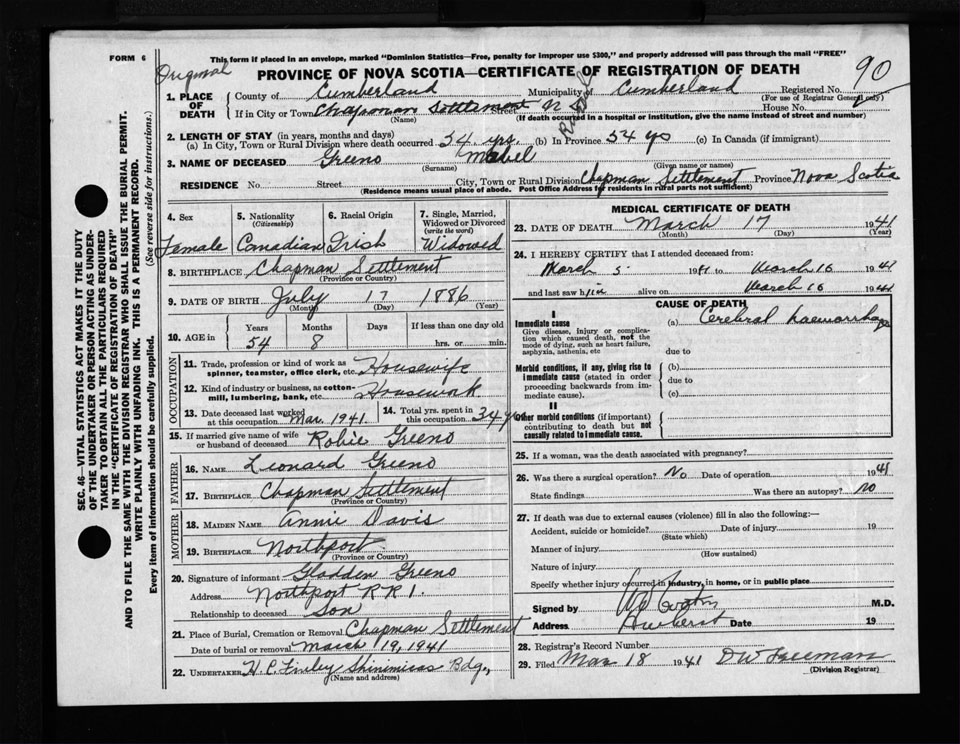 FORM 6
This form if placed in an envelope, marked "Dominion Statistics—Free, penalty for improper use $300," and properly addressed will pass through the mail "FREE"
Original
PROVINCE OF NOVA SCOTIA—CERTIFICATE OF REGISTRATION OF DEATH
90
1. PLACE OF DEATH
County of Cumberland Municipality of Cumberland Registered No.
(For use of Registrar General only)
If in City or Town Chapman Settlement N S Street House No.
(Name) (If death occurred in a hospital or institution, give the name instead of street and number)
2. LENGTH OF STAY (in years, months and days)
(a) In City, Town or Rural Division where death occurred 54 yrs. (b) In Province 54 yrs (c) In Canada (if immigrant)
3. NAME OF DECEASED Greeno Mabel
(Surname) (Given name or names)
RESIDENCE No. Street City, Town or Rural Division Chapman Settlement Province Nova Scotia
(Residence means usual place of abode. Post Office Address for residents in rural parts not sufficient)
4. Sex Female
5. Nationality (Citizenship) Canadian
6. Racial Origin Irish
7. Single, Married, Widowed or Divorced (write the word) Widowed
8. BIRTHPLACE Chapman Settlement
(Province or Country)
9. DATE OF BIRTH July 17 1886
(Month) (Day) (Year)
10. AGE in Years Months Days If less than one day old
54 8 hrs. or min.
OCCUPATION
11. Trade, profession or kind of work as spinner, teamster, office clerk, etc. Housewife
12. Kind of industry or business, as cotton-mill, lumbering, bank, etc. Housework
13. Date deceased last worked at this occupation Mar. 1941. 14. Total yrs. spent in this occupation 34 yrs
15. If married give name of wife or husband of deceased Robie Greeno
FATHER
16. NAME Leonard Greeno
17. BIRTHPLACE Chapman Settlement
(Province or Country)
MOTHER
18. MAIDEN NAME Annie Davis
19. BIRTHPLACE Northport
(Province or Country)
20. Signature of informant Gladden Greeno
Address Northport R R 1.
Relationship to deceased Son
21. Place of Burial, Cremation or Removal Chapman Settlement
Date of burial or removal March 19, 1941
22. UNDERTAKER Shinimicas Bdg.,
(Name and address)
MEDICAL CERTIFICATE OF DEATH
23. DATE OF DEATH March 17 1941
(Month) (Day) (Year)
24. I HEREBY CERTIFY that I attended deceased from:
March 5 1941 to March 16 1941
and last saw h alive on March 16 1941
CAUSE OF DEATH
I
Immediate cause
Give disease, injury or complication which caused death, not the mode of dying, such as heart failure, asphyxia, asthenia, etc
(a) Cerebral haemorrhage
due to
Morbid conditions, if any, giving rise to immediate cause (stated in order proceeding backwards from immediate cause).
(b)
due to
(c)
II
Other morbid conditions (if important) contributing to death but not causally related to immediate cause.
25. If a woman, was the death associated with pregnancy?
26. Was there a surgical operation? No Date of operation 1941
State findings Was there an autopsy? no
27. If death was due to external causes (violence) fill in also the following:—
Accident, suicide or homicide? Date of injury 19
(State which)
Manner of injury
(How sustained)
Nature of injury
Specify whether injury occurred in industry, in home, or in public place
Signed by M.D.
Address Amherst Date 19
28. Registrar's Record Number
29. Filed Mar 18 1941 D W Freeman
(Division Registrar)
SEC. 46—VITAL STATISTICS ACT MAKES IT THE DUTY
OF THE UNDERTAKER OR PERSON ACTING AS UNDER-
TAKER TO OBTAIN ALL THE PARTICULARS REQUIRED
IN THE "CERTIFICATE OF REGISTRATION OF DEATH"
AND TO FILE THE SAME WITH THE DIVISION REGISTRAR WHO SHALL ISSUE THE BURIAL PERMIT.
WRITE PLAINLY WITH UNFADING INK. THIS IS A PERMANENT RECORD.
Every item of information should be carefully supplied. (See reverse side for instructions.)